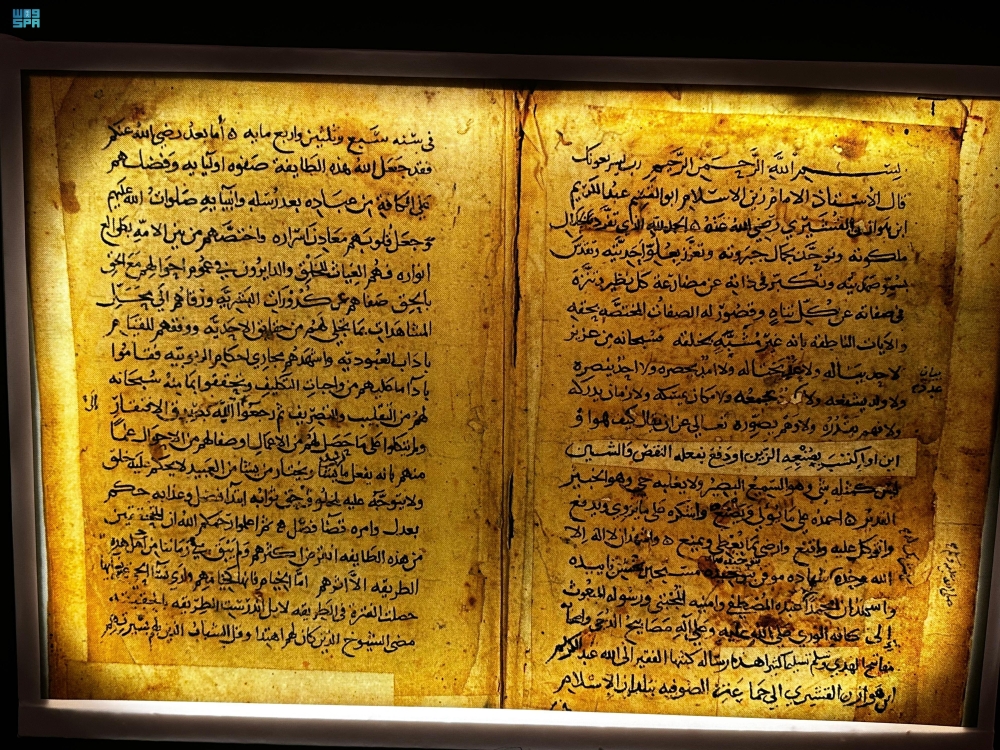 واس
SPA
بسم الله الرحمن الرحيم رب يسر بعونك
قال الاستاذ الامام زين الاسلام ابو القسم عبد الكريم
ابن هوازن القشيري رضي الله عنه الحمد لله الذي تفرد بجلال
ملكوته وتوحد بجمال جبروته وتعزز بعلو احديته وتقدس
بسمو صمديته وتكبر في ذاته عن مضارعة كل نظير وتنزه
في صفاته عن كل تناه وقصور له الصفات المختصة بحقه
والايات الناطقة بانه غير مشبه بخلقه فسبحانه من عزيز
لا حد يناله ولا عد يحتاله ولا امد يحصره ولا احد ينصره
ولا ولد يشفعه ولا عدد يجمعه ولا مكان يمسكه ولا زمان يدركه
ولا فهم يقدره ولا وهم يصوره تعالى عن ان يقال كيف هو او
اين هو او اكتسب بصنعه الزين او دفع بفعله النقص والشين
ليس كمثله شي وهو السميع البصير ولا يغلبه حي وهو الخبير
القدير احمده على ما يولي ويصنع واشكره على ما يزوي ويدفع
واتوكل عليه واقنع وارضى بما يعطي ويمنع واشهد ان لا اله الا
الله وحده شهادة موقن بتوحيده مستجير بحسن تاييده
واشهد ان محمدا عبده المصطفى وامينه المجتبى ورسوله المبعوث
الى كافة الورى صلى الله عليه وعلى اله مصابيح الدجى واصحابه
مفاتيح الهدى وسلم تسليما كثيرا هذه رسالة كتبها الفقير الى الله عبد الكريم
ابن هوازن القشيري الى جماعة الصوفية ببلدان الاسلام
في سنة سبع وثلثين واربع مايه اما بعد رضي الله عنكم
فقد جعل الله هذه الطايفة صفوة اوليايه وفضلهم
على الكافة من عباده بعد رسله وانبيايه صلوات الله عليهم
وجعل قلوبهم معادن اسراره واختصهم من بين الامة بطوالع
انواره فهم الغياث للخلق والدايرون في عموم احوالهم مع الحق
بالحق صفاهم من كدورات البشرية ورقاهم الى محل
المشاهدات بما تجلى لهم من حقايق الاحدية ووفقهم للقيام
باداب العبودية واشهدهم مجاري احكام الربوبية فقاموا
باداء ما عليهم من واجبات التكليف وتحققوا بما منه سبحانه
لهم من التقليب والتصريف ثم رجعوا الى الله بصدق الافتقار
ولم يتكلوا على ما حصل لهم من الاعمال او صفا لهم من الاحوال علما
منهم بانه يفعل ما يشا ويختار من يشا من العبيد لا يحكم عليه خلق
ولا يتوجه عليه لمخلوق حق ثوابه ابتدا فضل وعذابه حكم
بعدل وامره قضا فصل ثم اعلموا رحمكم الله ان المحققين
من هذه الطايفة انقرض اكثرهم ولم يبق في زماننا من هذه
الطريقة الا اثرهم اما الخيام فانها كخيامهم وارى نسا الحي غير نسايها
حصلت الفترة في الطريقة لا بل اندرست الطريقة بالحقيقة
مضى الشيوخ الذين كان لهم اهتدا وقل الشباب الذين لهم بسيرتهم